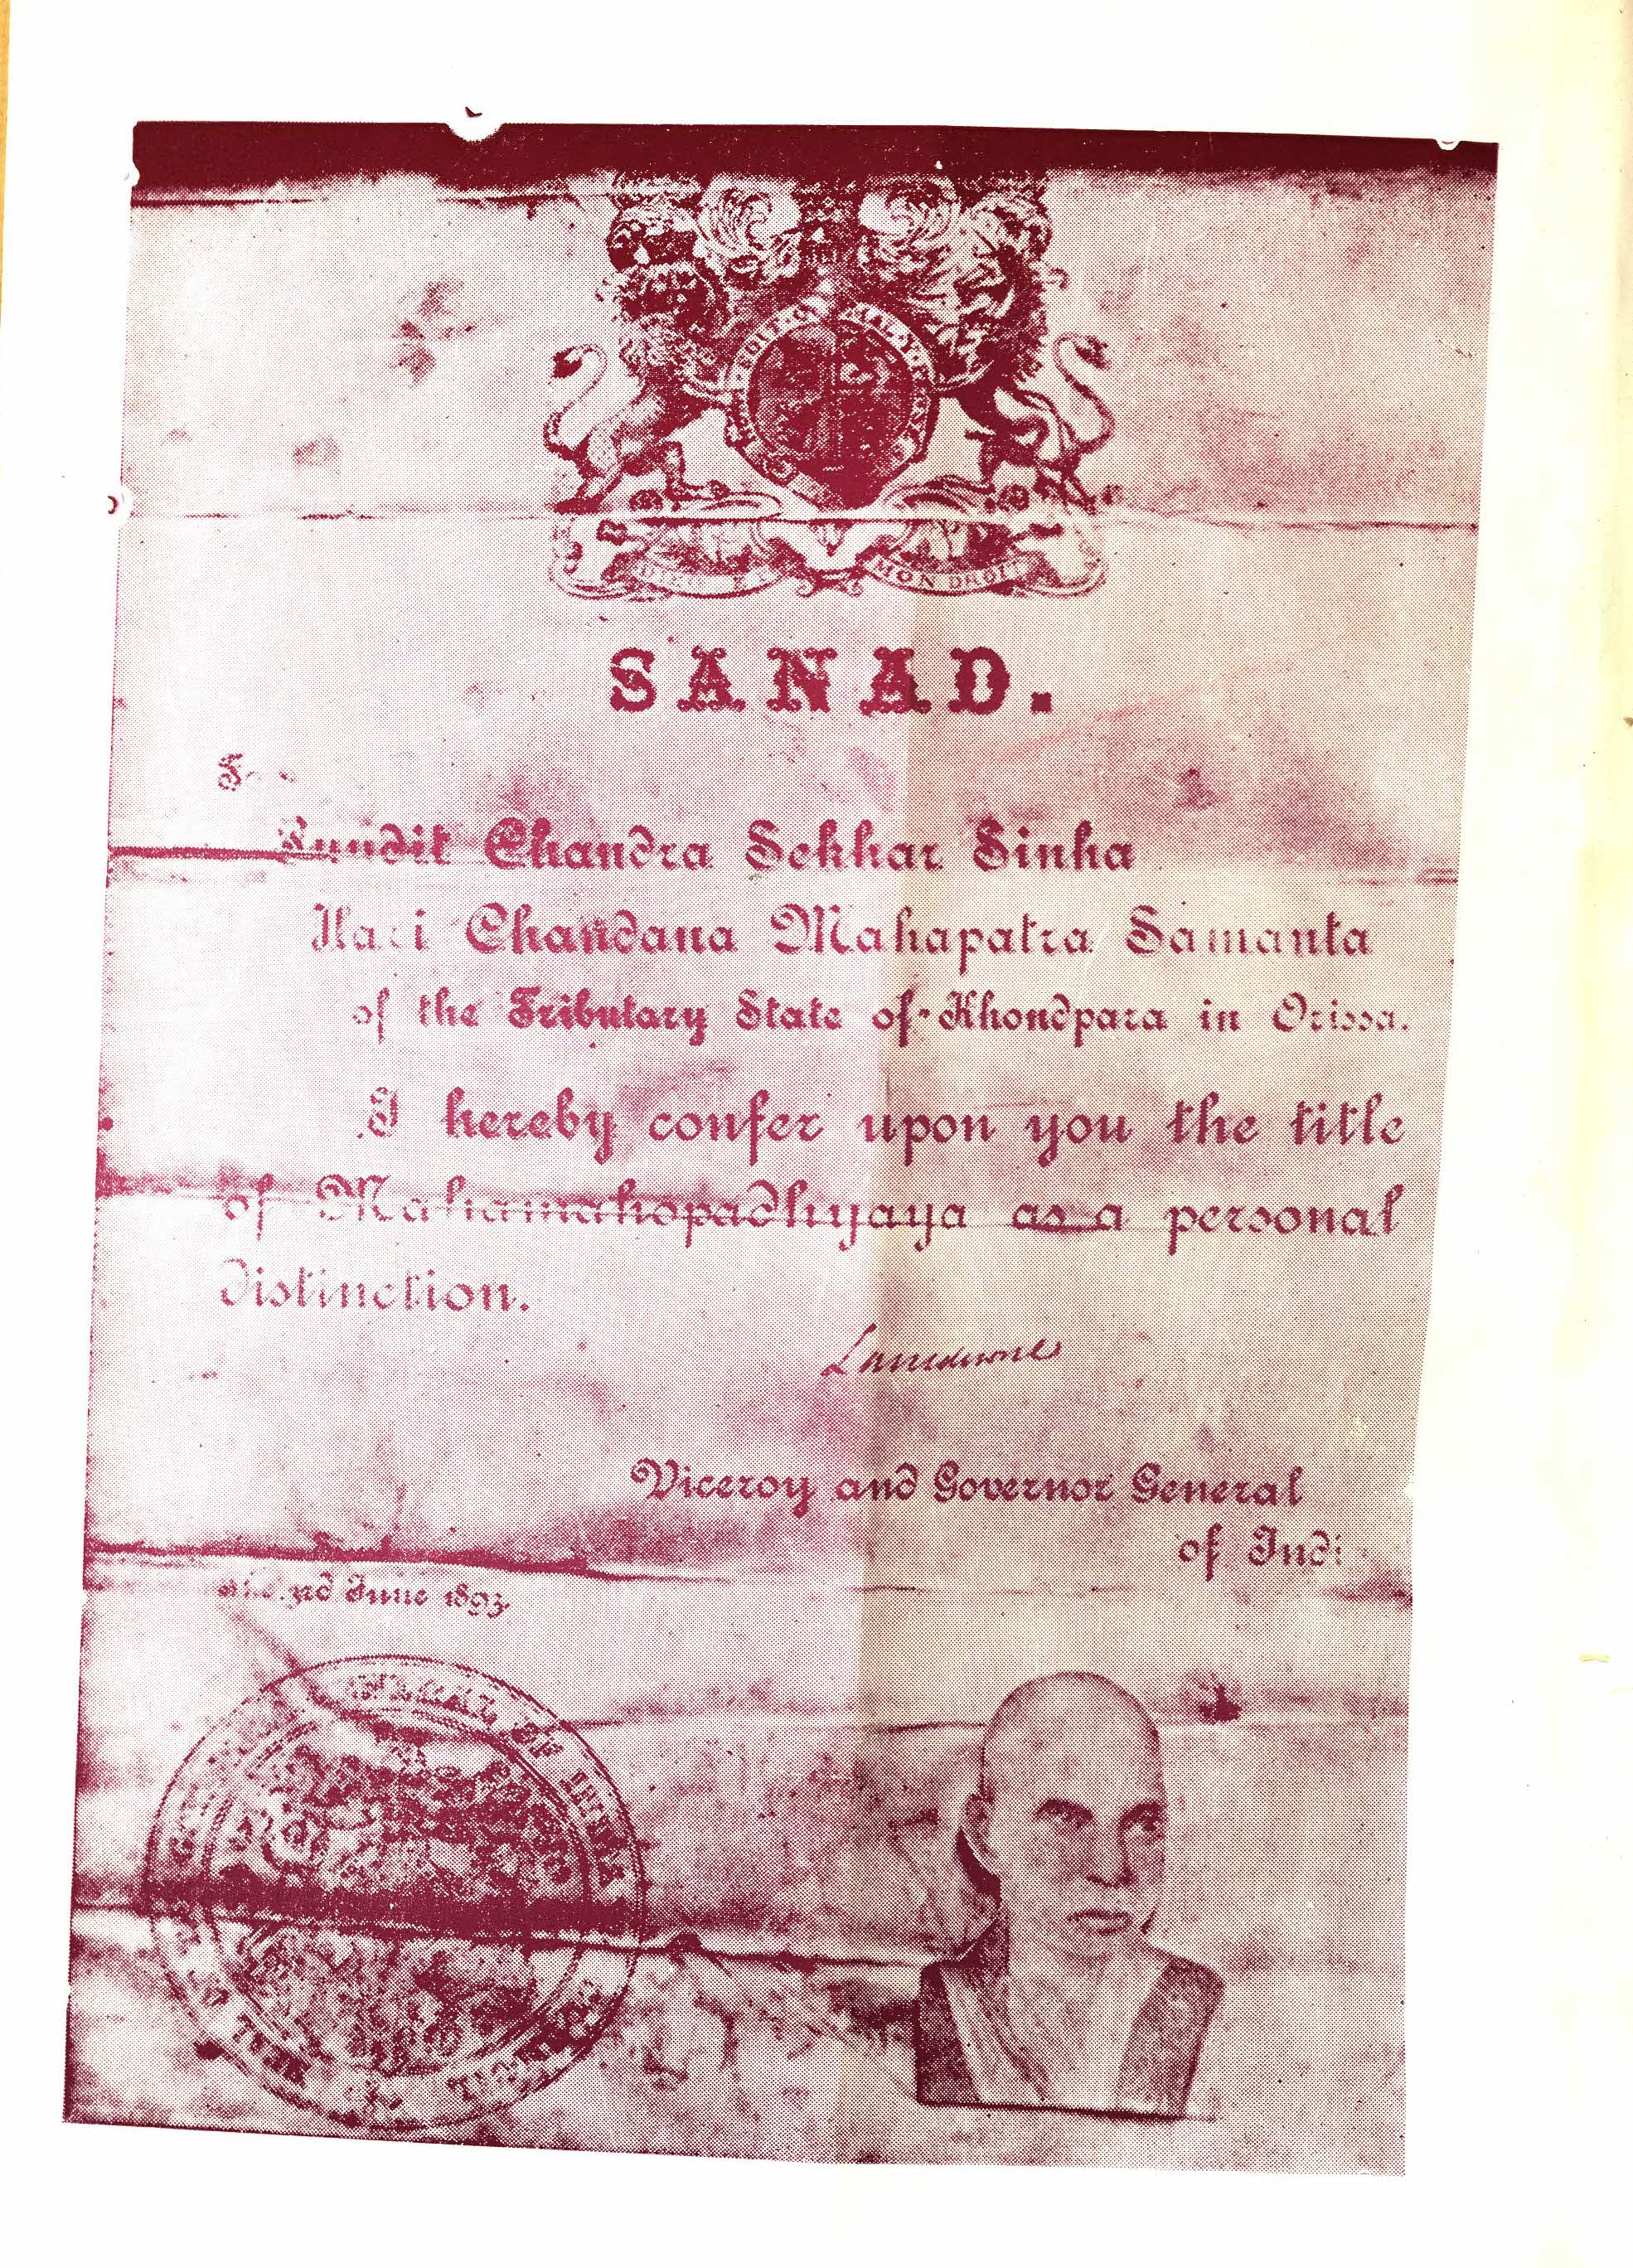 HONI SOIT QUI MAL Y PENSE
DIEU ET MON DROIT
SANAD.
To
Pundit Chandra Sekhar Sinha
Hari Chandana Mahapatra Samanta
of the Tributary State of Khondpara in Orissa.
I hereby confer upon you the title
of Mahamahopadhyaya as a personal
distinction.
Lansdowne
Viceroy and Governor General
of Indi
3rd June 1893
GENERAL OF INDIA